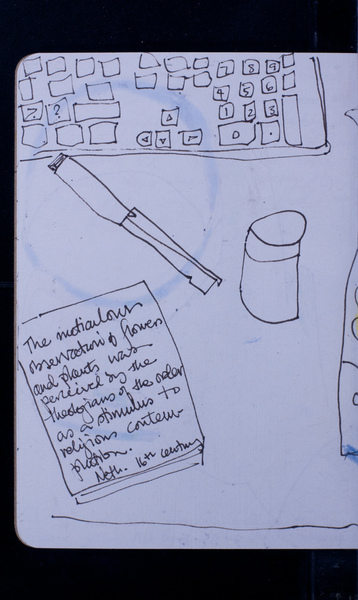 7 8 9
4 5 6
> ? 1 2 3
0 .
The meticulous
observation of flowers
and plants was
perceived by the
theologians of the order
as a stimulus to
religious contem
plation.
Neth. 16th century